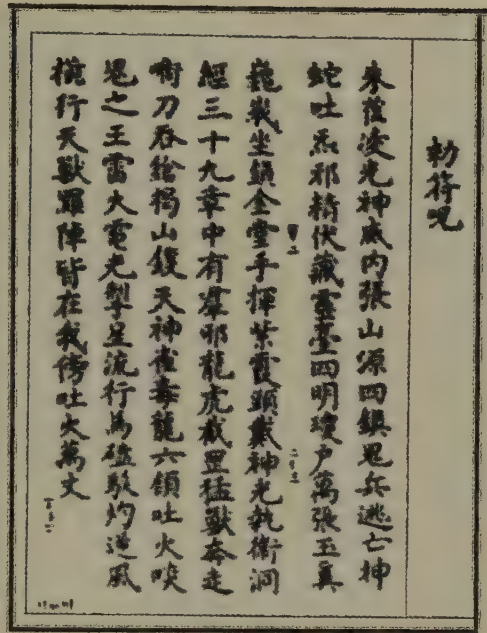 勅符咒
凌光神威內張山源四鎮鬼兵逃亡神
蛇吐炁邪精伏藏靈臺四明瓊户萬張玉真
巍峩坐鎮金手揮紫霞頭戴神光執衛洞
經三十九章中有羣邪龍虎截罡猛獸奔走
啣刀吞鎗揭山鑊天神雀毒龍六領吐火啖
鬼之王雷火電光掣星流行萬磕駮灼逆風
橫行天獸羅陣皆在我傍吐火萬丈